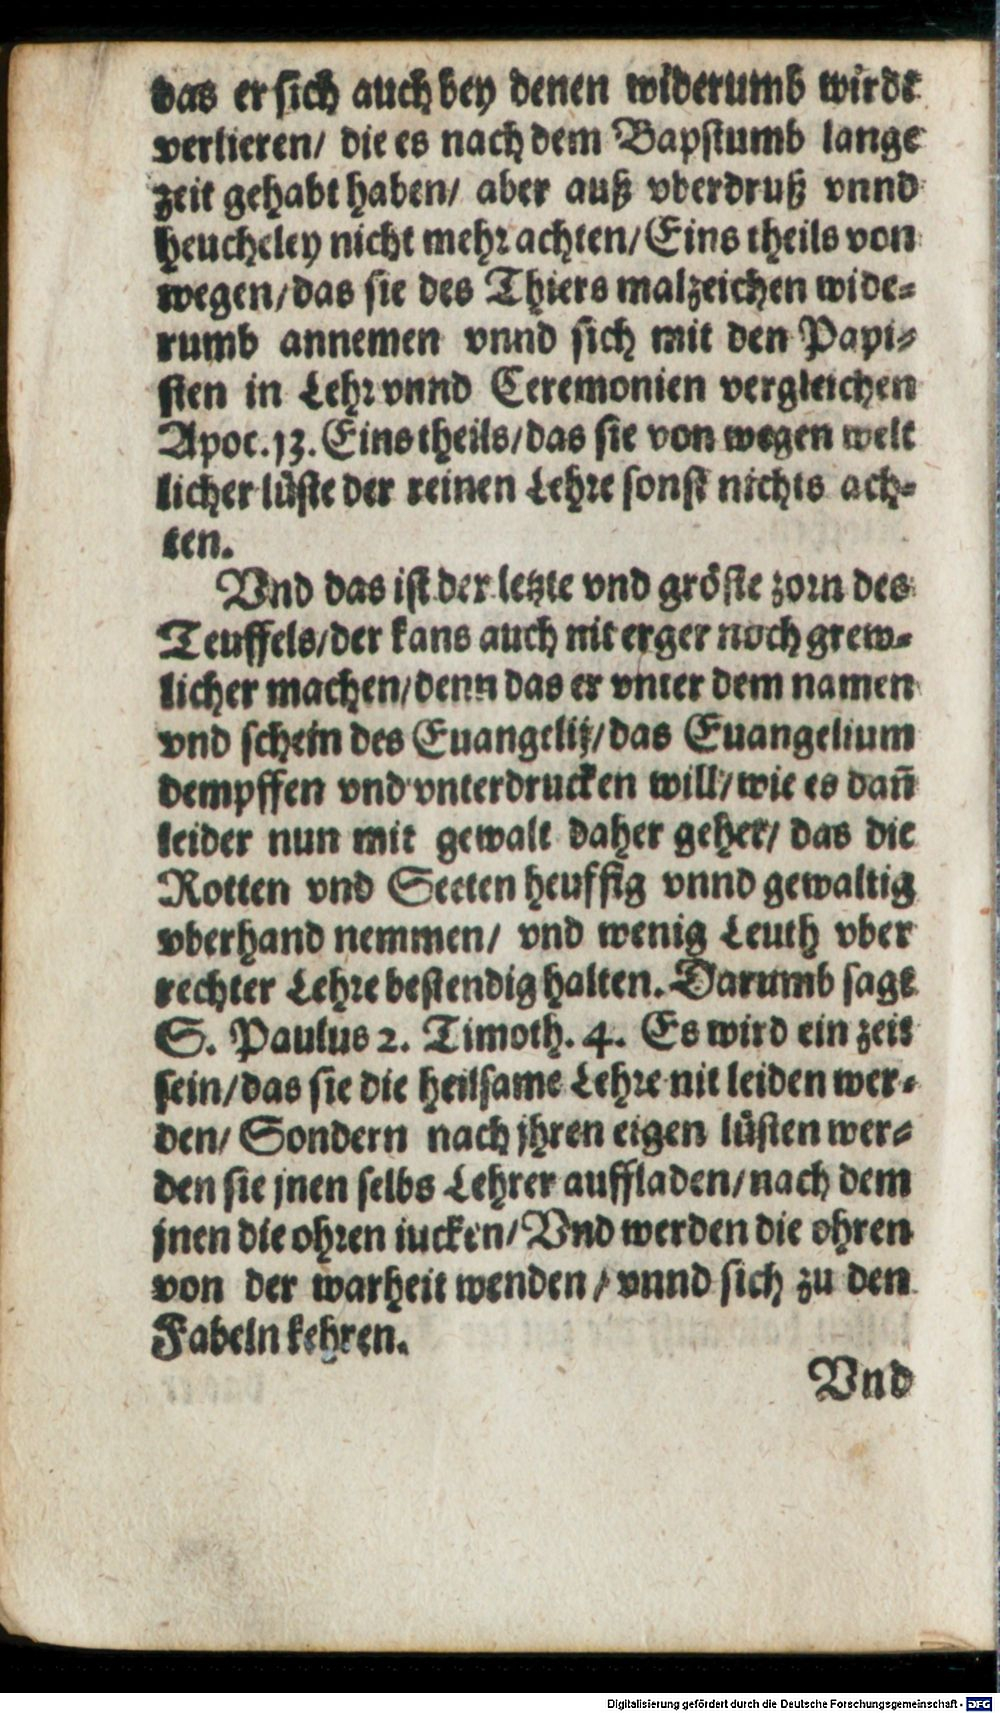 das er sich auch bey denen widerumb wirdt
verlieren/ die es nach dem Bapstumb lange
zeit gehabt haben/ aber auß vberdruß vnnd
heucheley nicht mehr achten/ Eins theils von
wegen/ das sie des Thiers malzeichen wide-
rumb annemen vnnd sich mit den Papi-
sten in Lehr vnnd Ceremonien vergleichen
Apoc. 13. Eins theils/ das sie von wegen welt
licher lüste der reinen Lehre sonst nichts ach-
ten.
Vnd das ist der letzte vnd gröste zorn des
Teuffels/ der kans auch nit erger noch grew-
licher machen/ denn das er vnter dem namen
vnd schein des Euangelij/ das Euangelium
dempffen vnd vnterdrucken will/ wie es dañ
leider nun mit gewalt daher gehet/ das die
Rotten vnd Secten heuffig vnnd gewaltig
vberhand nemmen/ vnd wenig Leuth vber
rechter Lehre bestendig halten. Darumb sagt
S. Paulus 2. Timoth. 4. Es wird ein zeit
sein/ das sie die heilsame Lehre nit leiden wer-
den/ Sondern nach jhren eigen lüsten wer-
den sie jnen selbs Lehrer auffladen/ nach dem
jnen die ohren iucken/ Vnd werden die ohren
von der warheit wenden/ vnnd sich zu den
Fabeln kehren.
Vnd
Digitalisierung gefördert durch die Deutsche Forschungsgemeinschaft - DFG